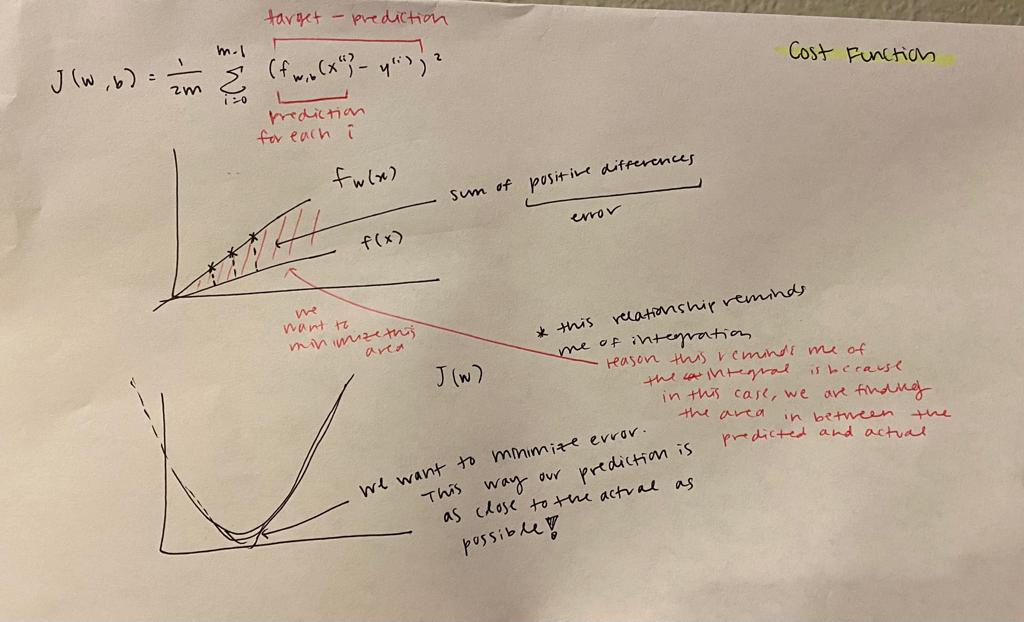 target - prediction
Cost Function
J(w,b) = 1/2m m-1 Σ i=0 (f w,b (x⁽ⁱ⁾) - y⁽ⁱ⁾)²
prediction
for each i
fw(x)
sum of positive differences
error
f(x)
we
want to
minimize this
area
* this relationship reminds
me of integration
reason this reminds me of
the integral is because
in this case, we are finding
the area in between the
predicted and actual
J(w)
we want to minimize error.
This way our prediction is
as close to the actual as
possible!